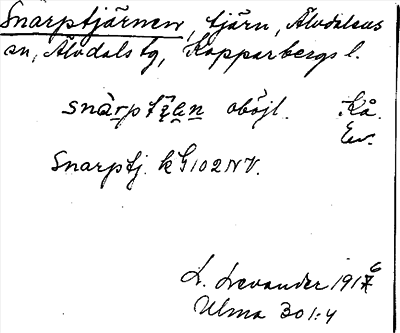 Snarptjärnen, tjärn, Älvdalens
sn, Älvdals tg, Kopparbergs l.
snàrp oböjl. Kå.
Ev.
Snarptj. k G102NV.
L. Levander 1916
Ulma 301:4